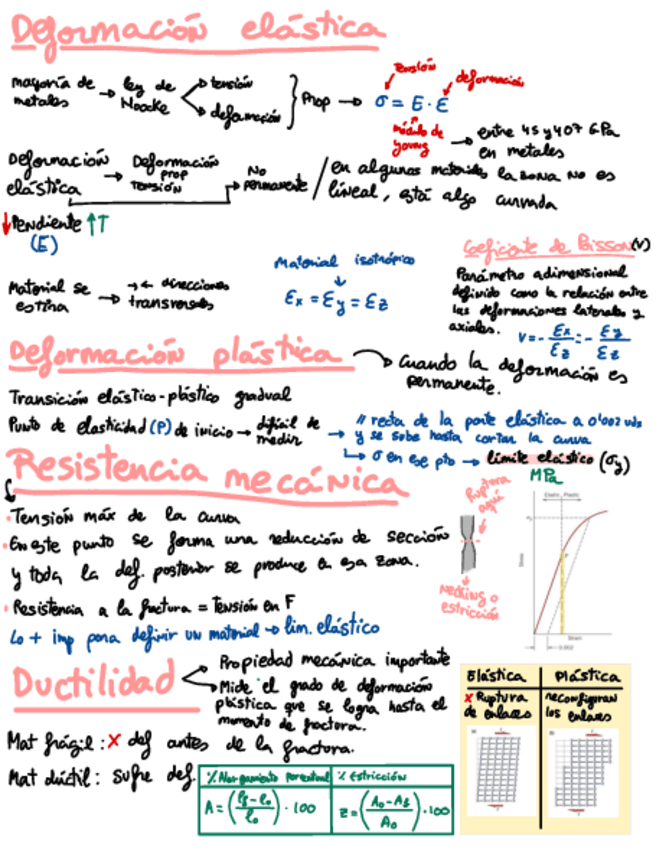 Deformación elástica
mayoría de metales → ley de Hoocke
tensión
deformación
Prop → σ = E · ε
tensión
deformación
módulo de young → entre 45 y 407 GPa en metales
Deformación elástica → Deformación prop tensión
No permanente
/ en algunos materiales la zona no es
lineal, está algo curvada
↓ Pendiente ↑T
(E)
Material se estira → →← direcciones transversales
Material isotrópico
↓
Ex = Ey = Ez
Coeficiente de Poisson (V)
Parámetro adimensional
definido como la relación entre
las deformaciones laterales y
axiales.
V = - Ex/Ez = - Ey/Ez
Deformación plástica
Cuando la deformación es
permanente.
Transición elástico-plástico gradual
Punto de elasticidad (P) de inicio → difícil de medir
→ // recta de la parte elástica a 0'002 uds
y se sube hasta cortar la curva
↳ σ en ese pto → límite elástico (σy)
MPa
Resistencia mecánica
• Tensión máx de la curva
• En este punto se forma una reducción de sección
y toda la def. posterior se produce en esa zona.
• Resistencia a la fractura = Tensión en F
Lo + imp para definir un material → lim. elástico
Ruptura
aquí
Necking o
estricción
Elastic
Plastic
Stress
P
Strain
0.002
Ductilidad
Propiedad mecánica importante
Mide el grado de deformación
plástica que se logra hasta el
momento de fractura.
Mat frágil: X def antes de la fractura.
Mat dúctil: sufre def.
% Alargamiento porcentual
A = (lf - lo / lo) · 100
% Estricción
Z = (Ao - Af / Ao) · 100
Elástica
Plástica
X Ruptura
de enlaces
reconfiguran
los enlaces